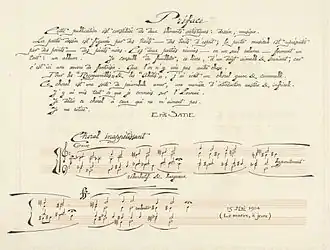 Préface
Cette publication est constituée de deux éléments artistiques: dessin, musique.
La partie dessin est figurée par des traits — des traits d'esprit; la partie musicale est représentée
par des points — des points noirs. Ces deux parties réunies — en un seul volume — forment un
tout: un album. Je conseille de feuilleter, ce livre, d'un doigt aimable & souriant; car
c'est ici une œuvre de fantaisie. Que l'on n'y voie pas autre chose.
Pour les "Recroquevillés" & les "Abêtis", j'ai écrit un choral grave & convenable.
Ce choral est une sorte de préambule amer, une manière d'introduction austère & infrivole.
J'y ai mis tout ce que je connais sur l'Ennui.
Je dédie ce choral à ceux qui ne m'aiment pas.
Je me retire.
ERIK SATIE
Choral inappétissant
Grave
Hypocritement
Rébarbatif & hargneux
ralentir
15 MAI 1914
(Le matin, à jeun)